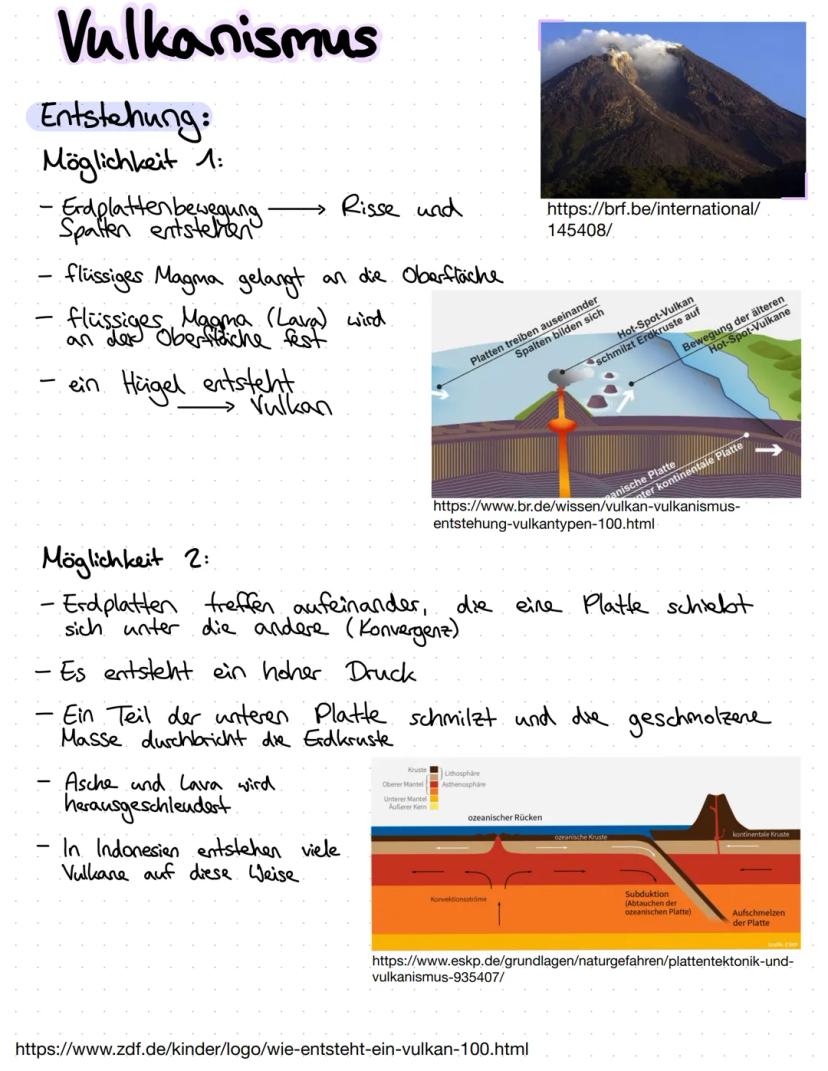 Vulkanismus
Entstehung:
Möglichkeit 1:
- Erdplattenbewegung → Risse und
Spalten entstehen
- flüssiges Magma gelangt an die Oberfläche
- flüssiges Magma (Lava) wird
an der Oberfläche fest
- ein Hügel entsteht
→ Vulkan
https://brf.be/international/
145408/
Platten treiben auseinander
Spalten bilden sich
Hot-Spot-Vulkan
schmilzt Erdkruste auf
Bewegung der älteren
Hot-Spot-Vulkane
anische Platte
nter kontinentale Platte
https://www.br.de/wissen/vulkan-vulkanismus-
entstehung-vulkantypen-100.html
Möglichkeit 2:
- Erdplatten treffen aufeinander, die eine Platte schiebt
sich unter die andere (Konvergenz)
- Es entsteht ein hoher Druck
- Ein Teil der unteren Platte schmilzt und die geschmolzene
Masse durchbricht die Erdkruste
- Asche und Lava wird
herausgeschleudert
- In Indonesien entstehen viele
Vulkane auf diese Weise
Kruste
Lithosphäre
Oberer Mantel
Asthenosphäre
Unterer Mantel
Äußerer Kern
ozeanischer Rücken
ozeanische Kruste
kontinentale Kruste
Konvektionsströme
Subduktion
(Abtauchen der
ozeanischen Platte)
Aufschmelzen
der Platte
Grafik: ESKP
https://www.eskp.de/grundlagen/naturgefahren/plattentektonik-und-
vulkanismus-935407/
https://www.zdf.de/kinder/logo/wie-entsteht-ein-vulkan-100.html